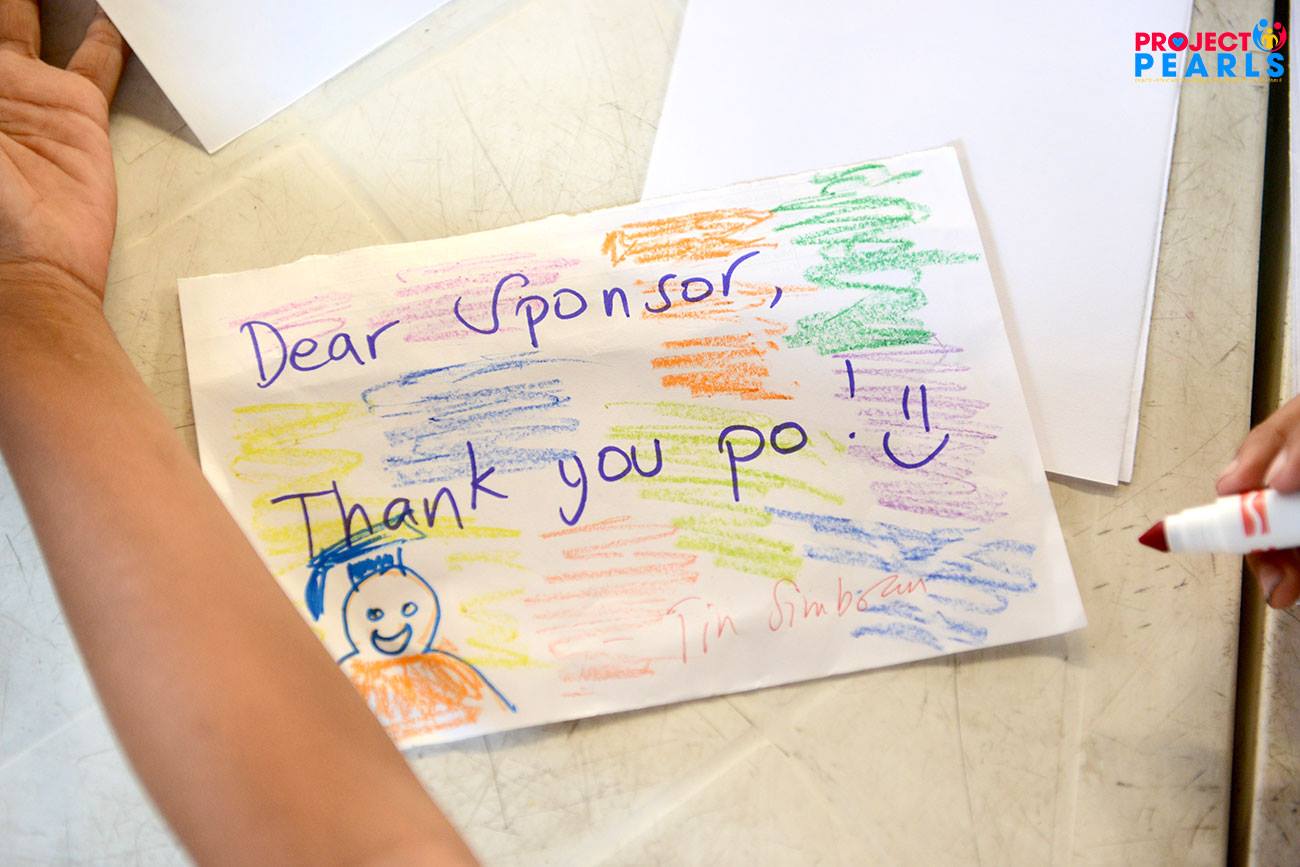 PROJECT
PEARLS
Dear Sponsor,
Thank you po! =)
Tin Simbran